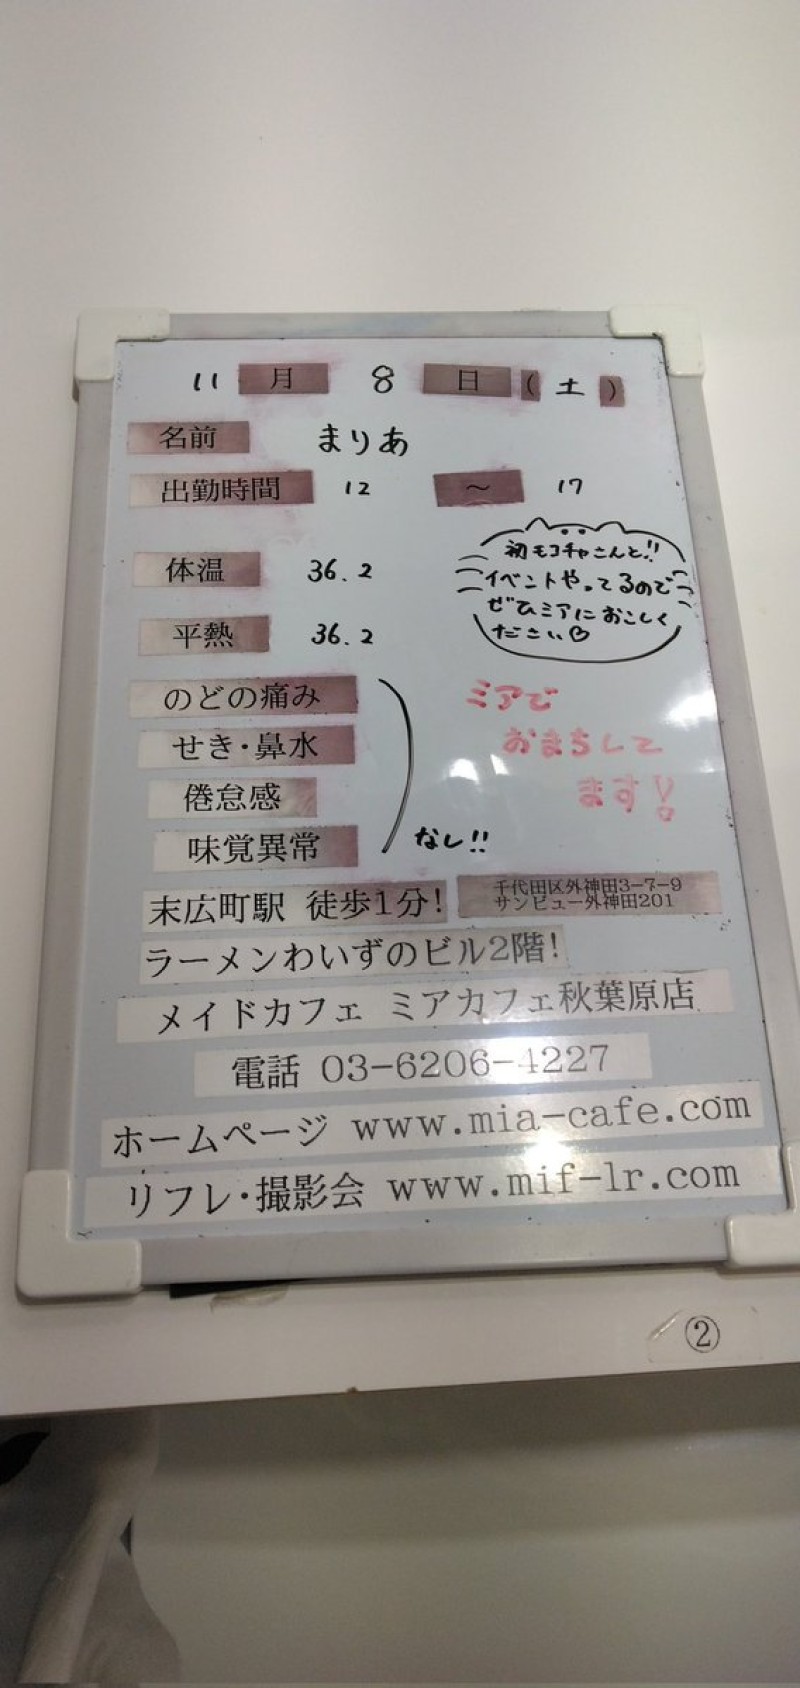 11月8日(土)
名前 まりあ
出勤時間 12 ～ 17
体温 36.2
平熱 36.2
初モコチャさんと!!
イベントやってるので
ぜひミアにおこしく
ださい♡
のどの痛み
せき・鼻水
倦怠感
味覚異常
なし!!
ミアで
おまちして
ます!
末広町駅 徒歩1分!
千代田区外神田3-7-9
サンビュー外神田201
ラーメンわいずのビル2階!
メイドカフェ ミアカフェ秋葉原店
電話 03-6206-4227
ホームページ www.mia-cafe.com
リフレ・撮影会 www.mif-lr.com
②